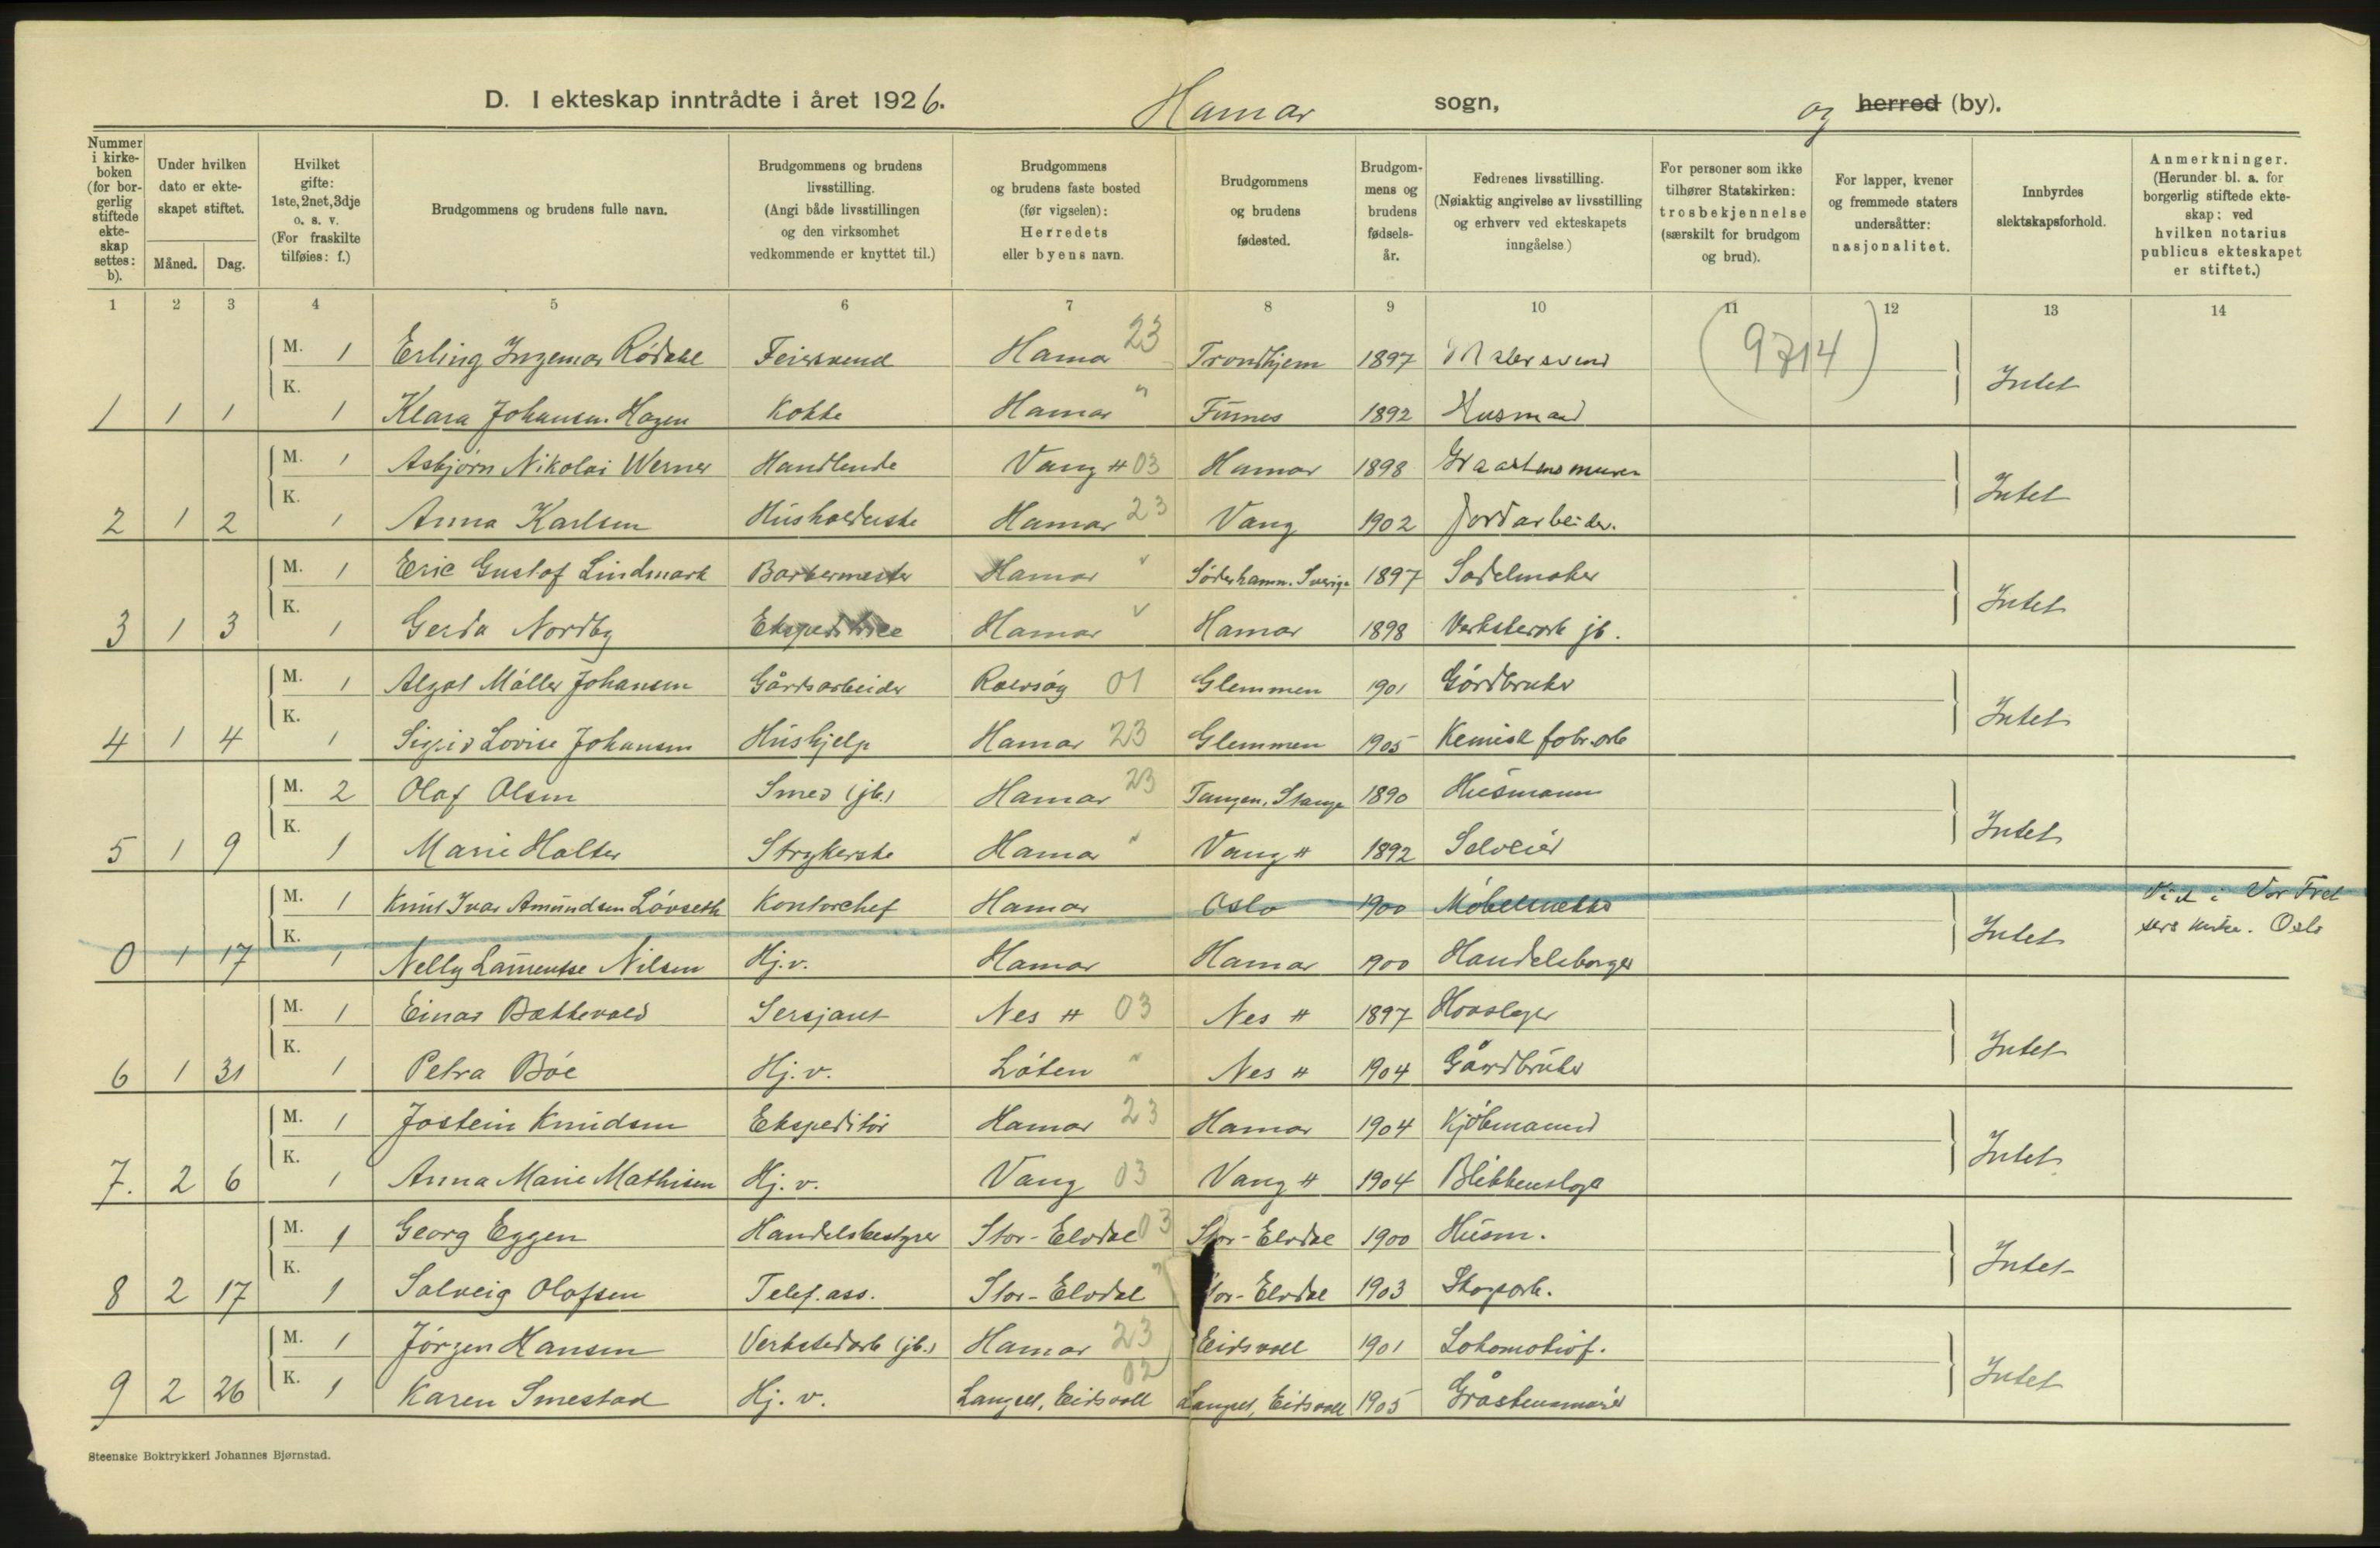 D. I ekteskap inntrådte i året 1926. Hamar sogn, og herred (by).
Nummer i kirkeboken (for borgerlig stiftede ekteskap settes: b).
Under hvilken dato er ekteskapet stiftet.
Måned. Dag.
Hvilket gifte: 1ste, 2net, 3dje o. s. v. (For fraskilte tilføies: f.)
Brudgommens og brudens fulle navn.
Brudgommens og brudens livsstilling. (Angi både livsstillingen og den virksomhet vedkommende er knyttet til.)
Brudgommens og brudens faste bosted (før vigselen): Herredets eller byens navn.
Brudgommens og brudens fødested.
Brudgommens og brudens fødselsår.
Fedrenes livsstilling. (Nøiaktig angivelse av livsstilling og erhverv ved ekteskapets inngåelse.)
For personer som ikke tilhører Statskirken: trosbekjennelse (særskilt for brudgom og brud).
For lapper, kvener og fremmede staters undersåtter: nasjonalitet.
Innbyrdes slektskapsforhold.
Anmerkninger. (Herunder bl. a. for borgerlig stiftede ekteskap: ved hvilken notarius publicus ekteskapet er stiftet.)
1 2 3 4 5 6 7 8 9 10 11 12 13 14
M. 1 Erling Ingemar Rødahl Feiersvend Hamar 23 Trondhjem 1897 Malersvend (9714) Intet
1 1 1 K. 1 Klara Johansen Hagen Kokke Hamar " Furnes 1892 Husmand
M. 1 Asbjørn Nikolai Werner Handlende Vang H 03 Hamar 1898 Graastensmurer Intet
2 1 2 K. 1 Anna Karlsen Husholderske Hamar 23 Vang 1902 Jordarbeider.
M. 1 Eric Gustof Lindmark Barbermester Hamar " Söderhamn. Sverige 1897 Sadelmaker Intet
3 1 3 K. 1 Gerda Nordby Ekspeditrice Hamar " Hamar 1898 Verkstedarb jb.
M. 1 Algot Møller Johansen Gårdsarbeider Rolvsøy 01 Glemmen 1901 Gårdbruker Intet
4 1 4 K. 1 Sigrid Lovise Johansen Hushjelp Hamar 23 Glemmen 1905 Kemisk fabr.arb
M. 2 Olaf Olsen Smed (jb.) Hamar 23 Tangen, Stange 1890 Husmann Intet
5 1 9 K. 1 Marie Holter Strykerske Hamar " Vang H 1892 Selveier
M. 1 Knut Ivar Amundsen Løvseth Kontorchef Hamar Oslo 1900 Møbelsnekker Intet Viet i Vor Frel
0 1 17 K. 1 Nelly Laurentse Nilsen Hj.v. Hamar Hamar 1900 Handelsborger sers kirke. Oslo
M. 1 Einar Bækkevold Sersjant Nes H 03 Nes H 1897 Hovslager Intet
6 1 31 K. 1 Petra Bøe Hj.v. Løten " Nes H 1904 Gårdbruker
M. 1 Jostein Knudsen Ekspeditør Hamar 23 Hamar 1904 Kjøbmannd Intet
7. 2 6 K. 1 Anna Marie Mathisen Hj.v. Vang 03 Vang H 1904 Blikkenslager
M. 1 Georg Eggen Handelsbestyrer Stor-Elvdal 03 Stor-Elvdal 1900 Husm. Intet
8 2 17 K. 1 Solveig Olafsen Telef.ass. Stor-Elvdal " Stor-Elvdal 1903 Skogarb.
M. 1 Jørgen Hansen Verkstedarb (jb.) Hamar 23 Eidsvoll 1901 Lokomotivf. Intet
9 2 26 K. 1 Karen Smestad Hj. v. Langset, Eidsvoll 02 Langset, Eidsvoll 1905 Gråstensmurer
Steenske Boktrykkeri Johannes Bjørnstad.